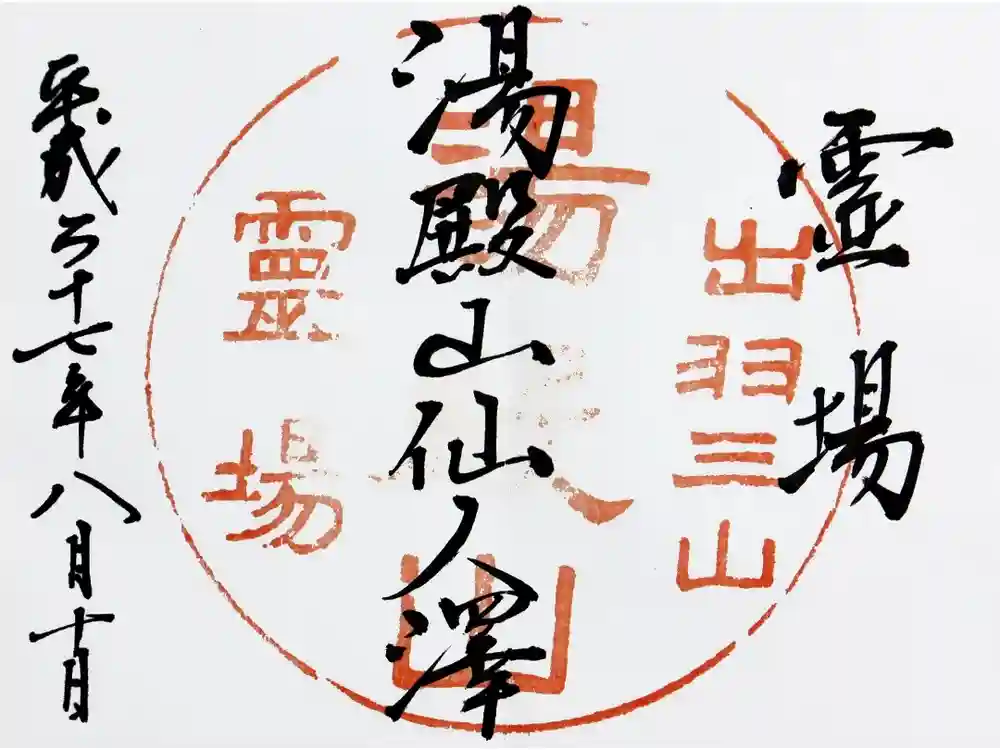 霊場
湯殿山仙人澤
平成二十七年八月十日
出羽三山
湯殿山
靈場